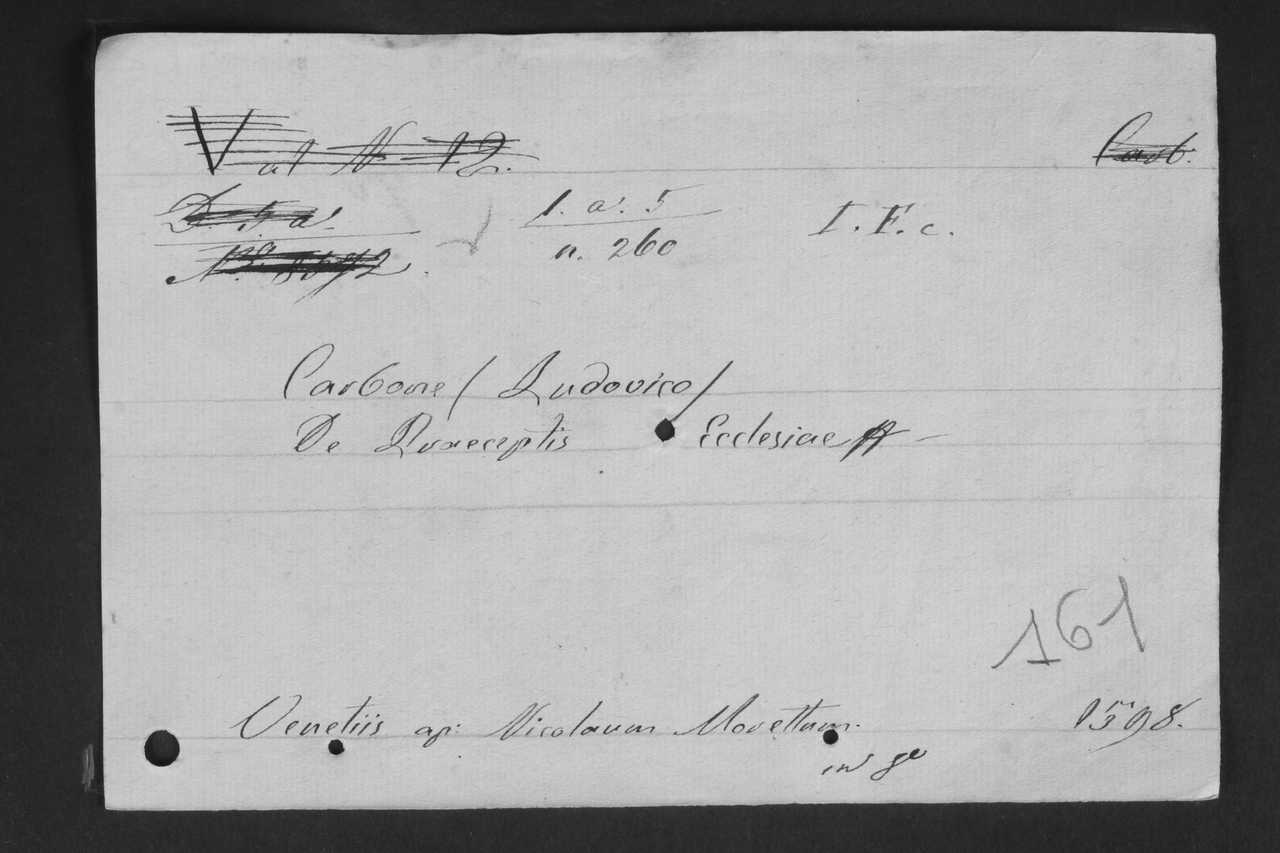 Vat N 12. Carb.
D. 5 a.
l. a. 5 I. F. c.
n. 260
Carbone / Ludovico /
De Praeceptis Ecclesiae
161
Venetiis ap: Nicolaum Morettum. 1598.
in 8º